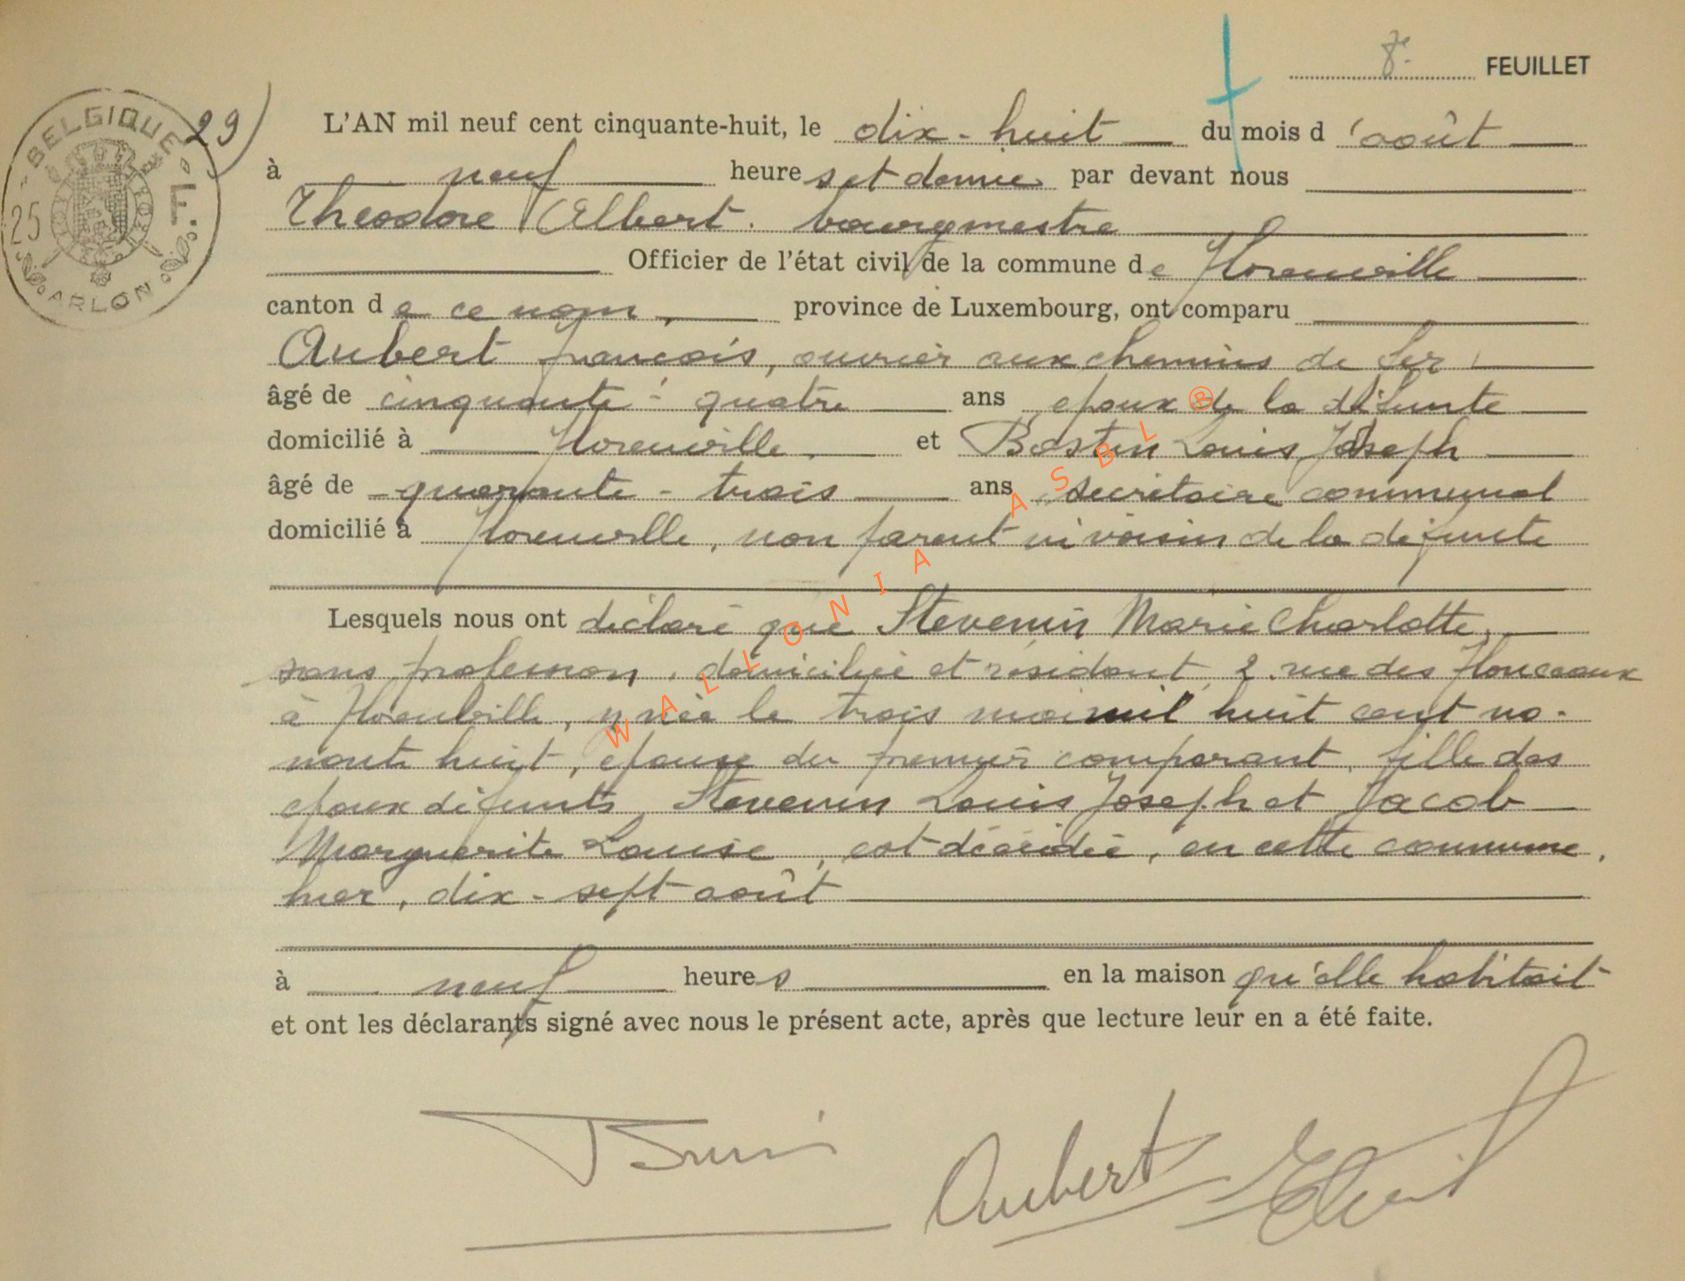 8e FEUILLET
BELGIQUE
25 F.
ARLON
29)
L'AN mil neuf cent cinquante-huit, le dix-huit du mois d'août
à neuf heures et demie par devant nous
Théodore Albert. bourgmestre
Officier de l'état civil de la commune de Florenville
canton de ce nom, province de Luxembourg, ont comparu
Aubert François, ouvrier aux chemins de fer,
âgé de cinquante-quatre ans époux de la défunte
domicilié à Florenville, et Bastin Louis Joseph
âgé de quarante-trois ans, secrétaire communal
domicilié à Florenville, non parent ni voisin de la défunte
Lesquels nous ont déclaré que Stevenin Marie Charlotte,
sans profession, domiciliée et résidant, 2, rue des
à Florenville, y née le trois mai mil huit cent no-
nante huit, épouse du premier comparant, fille des
époux défunts Stevenin Louis Joseph et Jacob
Marguerite Louise, est décédée, en cette commune,
hier, dix-sept août
à neuf heures en la maison qu'elle habitait
et ont les déclarants signé avec nous le présent acte, après que lecture leur en a été faite.
Aubert
WALLONIA ASBL ®